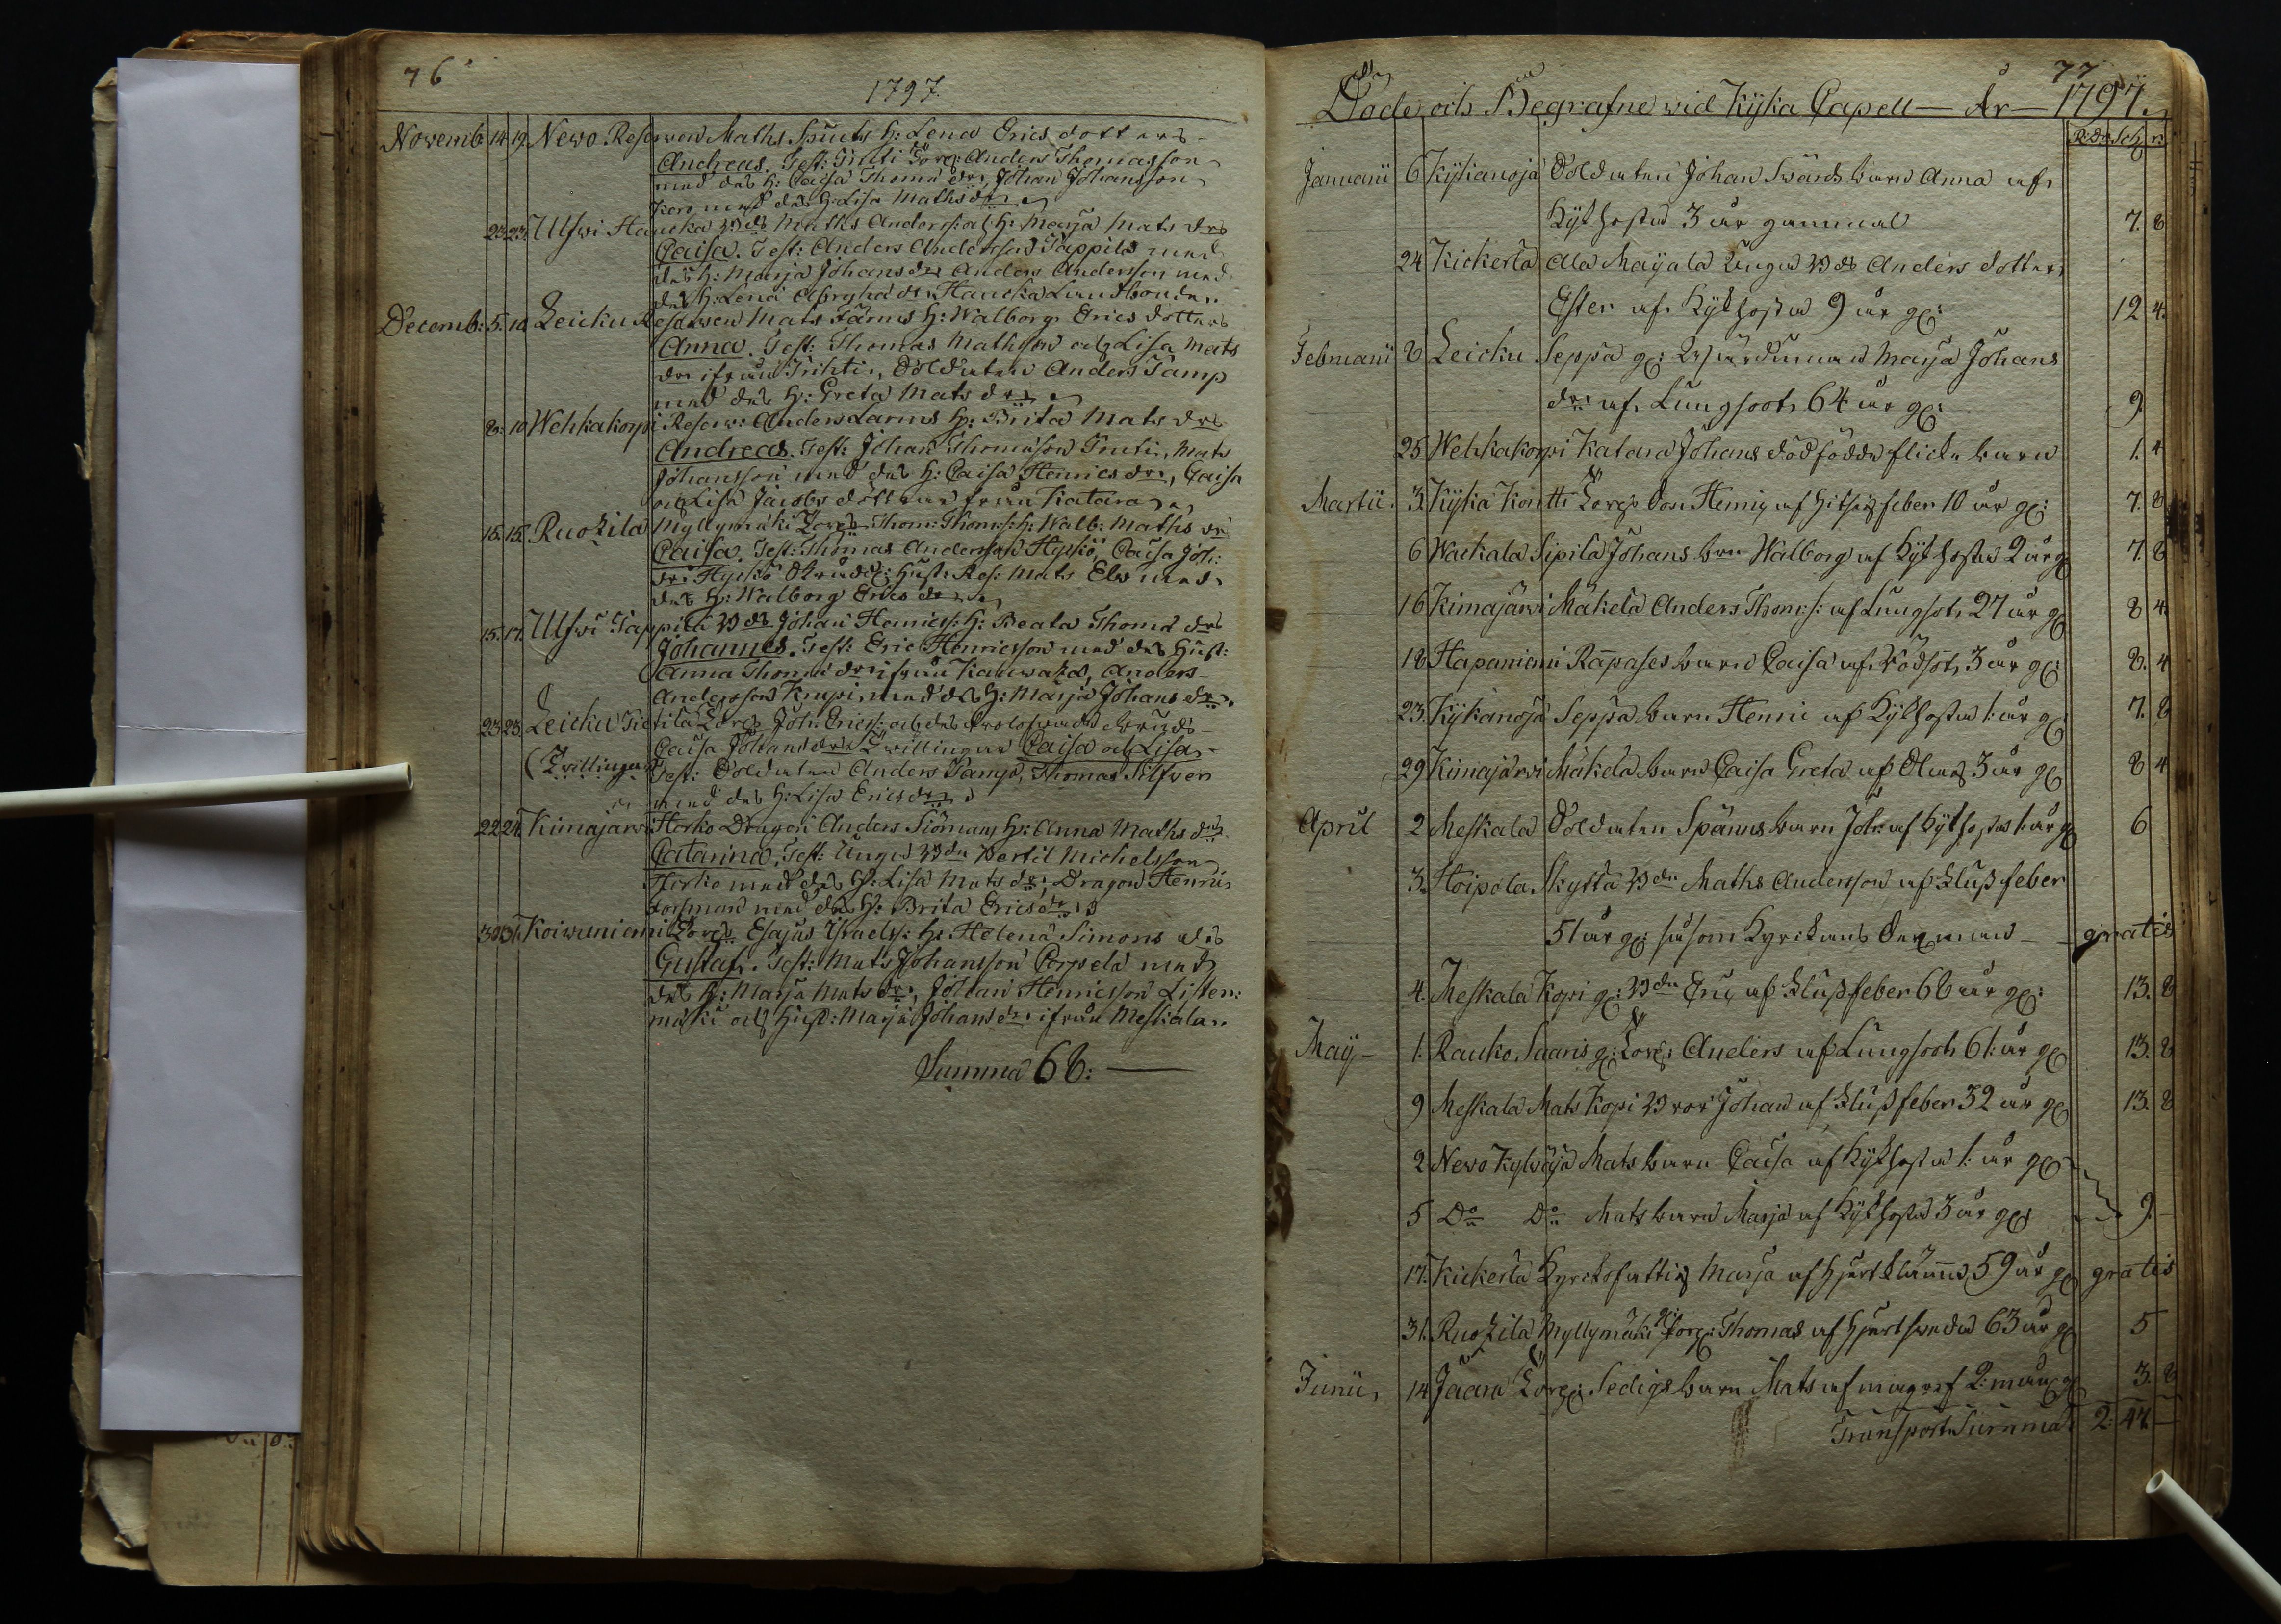 76
1797.
Novemb. 14. 19. Newo Reserven Maths Spuuts h: Lena Erics dotters
Andreas. Test: Truti Torp: Anders Thomasson
med des h: Caisa Thoma dr, Johan Johansson
Kero med des h: Lisa Maths dr
23. 23. Ulfwi Haucka Bds Maths Anders: och h: Marja Mats drs
Caisa. Test: Anders Andersson Tappila med
des h: Marja Johans dr Anders Andersson med
des h: Lena dr Haucka Landbonde.
Decemb: 5. 10. Leicku Reserven Mats Tamms h: Walborg Erics dotters
Anna. Test: Thomas Mathsson och Lisa Mats
dr ifrån Trihti, Soldaten Anders Tamp
med des h: Greta Mats dr
8. 10. Wehkakorpi Reserv: Anders Larms h: Brita Mats drs
Andreas. Test: Johan Thomasson Truti, Mats
Johansson med des h: Caisa Henrics dr, Caisa
och Lisa Jacobs döttrar från Katara
15. 15. Ruokila Myllymäki Torp: Thom: Thoms: h: Walb: Maths dr
Caisa. Test: Thomas Andersson Hyckö, Caisa Joh:
dr Hyckö Hust: Res: Mats Elo med
des h: Walborg Erics dr
15. 17. Ulfwi Tappila Bds Johan Henrics: h: Beata Thoma drs
Johannes. Test: Eric Henricsson med des Hust:
Anna Thoma dr ifrån Kauwaka, Anders
Andersson Knupi med des h: Marja Johans dr.
23. 23. Leicku Torp: Joh: Erics: och des
Caisa Johans drs Twillingar Caisa och Lisa
(Twillingar Test: Soldaten Anders Tamp, Thomas Silfver
med des h: Lisa Erics dr
22. 24. Kimajärwi Horko Dragon Anders Siömans h: Anna Maths drs
Catarina. Test: Unge Bdn Bertil Michelsson
Horko med des h: Lisa Mats dr, Dragon Henric
Forsman med des h: Brita Erics dr
30. 31. Koiwuniemi Torp: Esajas Israels: h: Helena Simons drs
Gustaf. Test: Mats Johansson Perpela med
des h: Marja Mats dr, Johan Henricsson Listen:
mäki och Hust: Marja Johans dr ifrån Meskala.
Summa 68:
77
Döde och Begrafne wid Kyska Capell — År — 1797.
R:dr Sch r:
Januarii 6 Kyskanoja Soldaten Johan Swärds barn Anna af
Kikhosta 3 år gammal 7. 8
24 Kickerla Ala Mayala Unga Bds Anders dotter
Ester af Kikhosta 9 år gl: 12 4.
Februarii 8 Leicku Seppä gl: Marja Johans
dr af Lungsoot 64 år gl: 9.
25 Wehkakorpi Katara Johans dödfödda flicke barn 1. 4
Martii 3. Kyska Kontti Torp: Son Henric af hitsig feber 10 år gl: 7. 8
6 Wackala Sipilä Johans barn Walborg af Kikhosta 2 år gl 7. 8
16 Kimajärwi Mäkelä Anders Thom:s: af Lungsot 27 år gl 8 4.
18 Hapaniemi Räpases barn Caisa af Rödsot 3 år gl: 8. 4
23. Kykanoja Seppä barn Henric af Kikhosta 1: år gl 7. 8
29 Kimajärwi Mäkelä barn Caisa Greta af Slag 3 år gl 8 4
April 2 Meskala Soldaten Spänns barn Joh: af Kikhosta 1: år gl 6
3. Hoipola Skyttä Bdn Maths Andersson af Flussfeber
51 år gl: såsom Kyrckans Sexman — gratis
4. Meskala Kopi gl: Bdn Eric af Flussfeber 68 år gl: 13. 8
May 1. Rauko Saaris gl: Torp: Anders af Lungsoot 61: år gl 13. 8
9 Meskala Mats Kopi Bror Johan af Flussfeber 32 år gl 13. 8
2 Newo Kylwäjä Mats barn Caisa af Kikhosta 1: år gl
5 Do Do Mats barn Marja af Kikhosta 3 år gl 9. —
17. Kickerla Kyrckofattig Marja af hjertklämma 59 år gl gratis
31. Ruokila Myllymäki gl: Torp: Thomas af hjertsweda 63 år gl 5
Junii 14 Jaara Torp: Sedigs barn Mats af magref 2: mån gl 3. 8
Transport Summa 2: 47. —